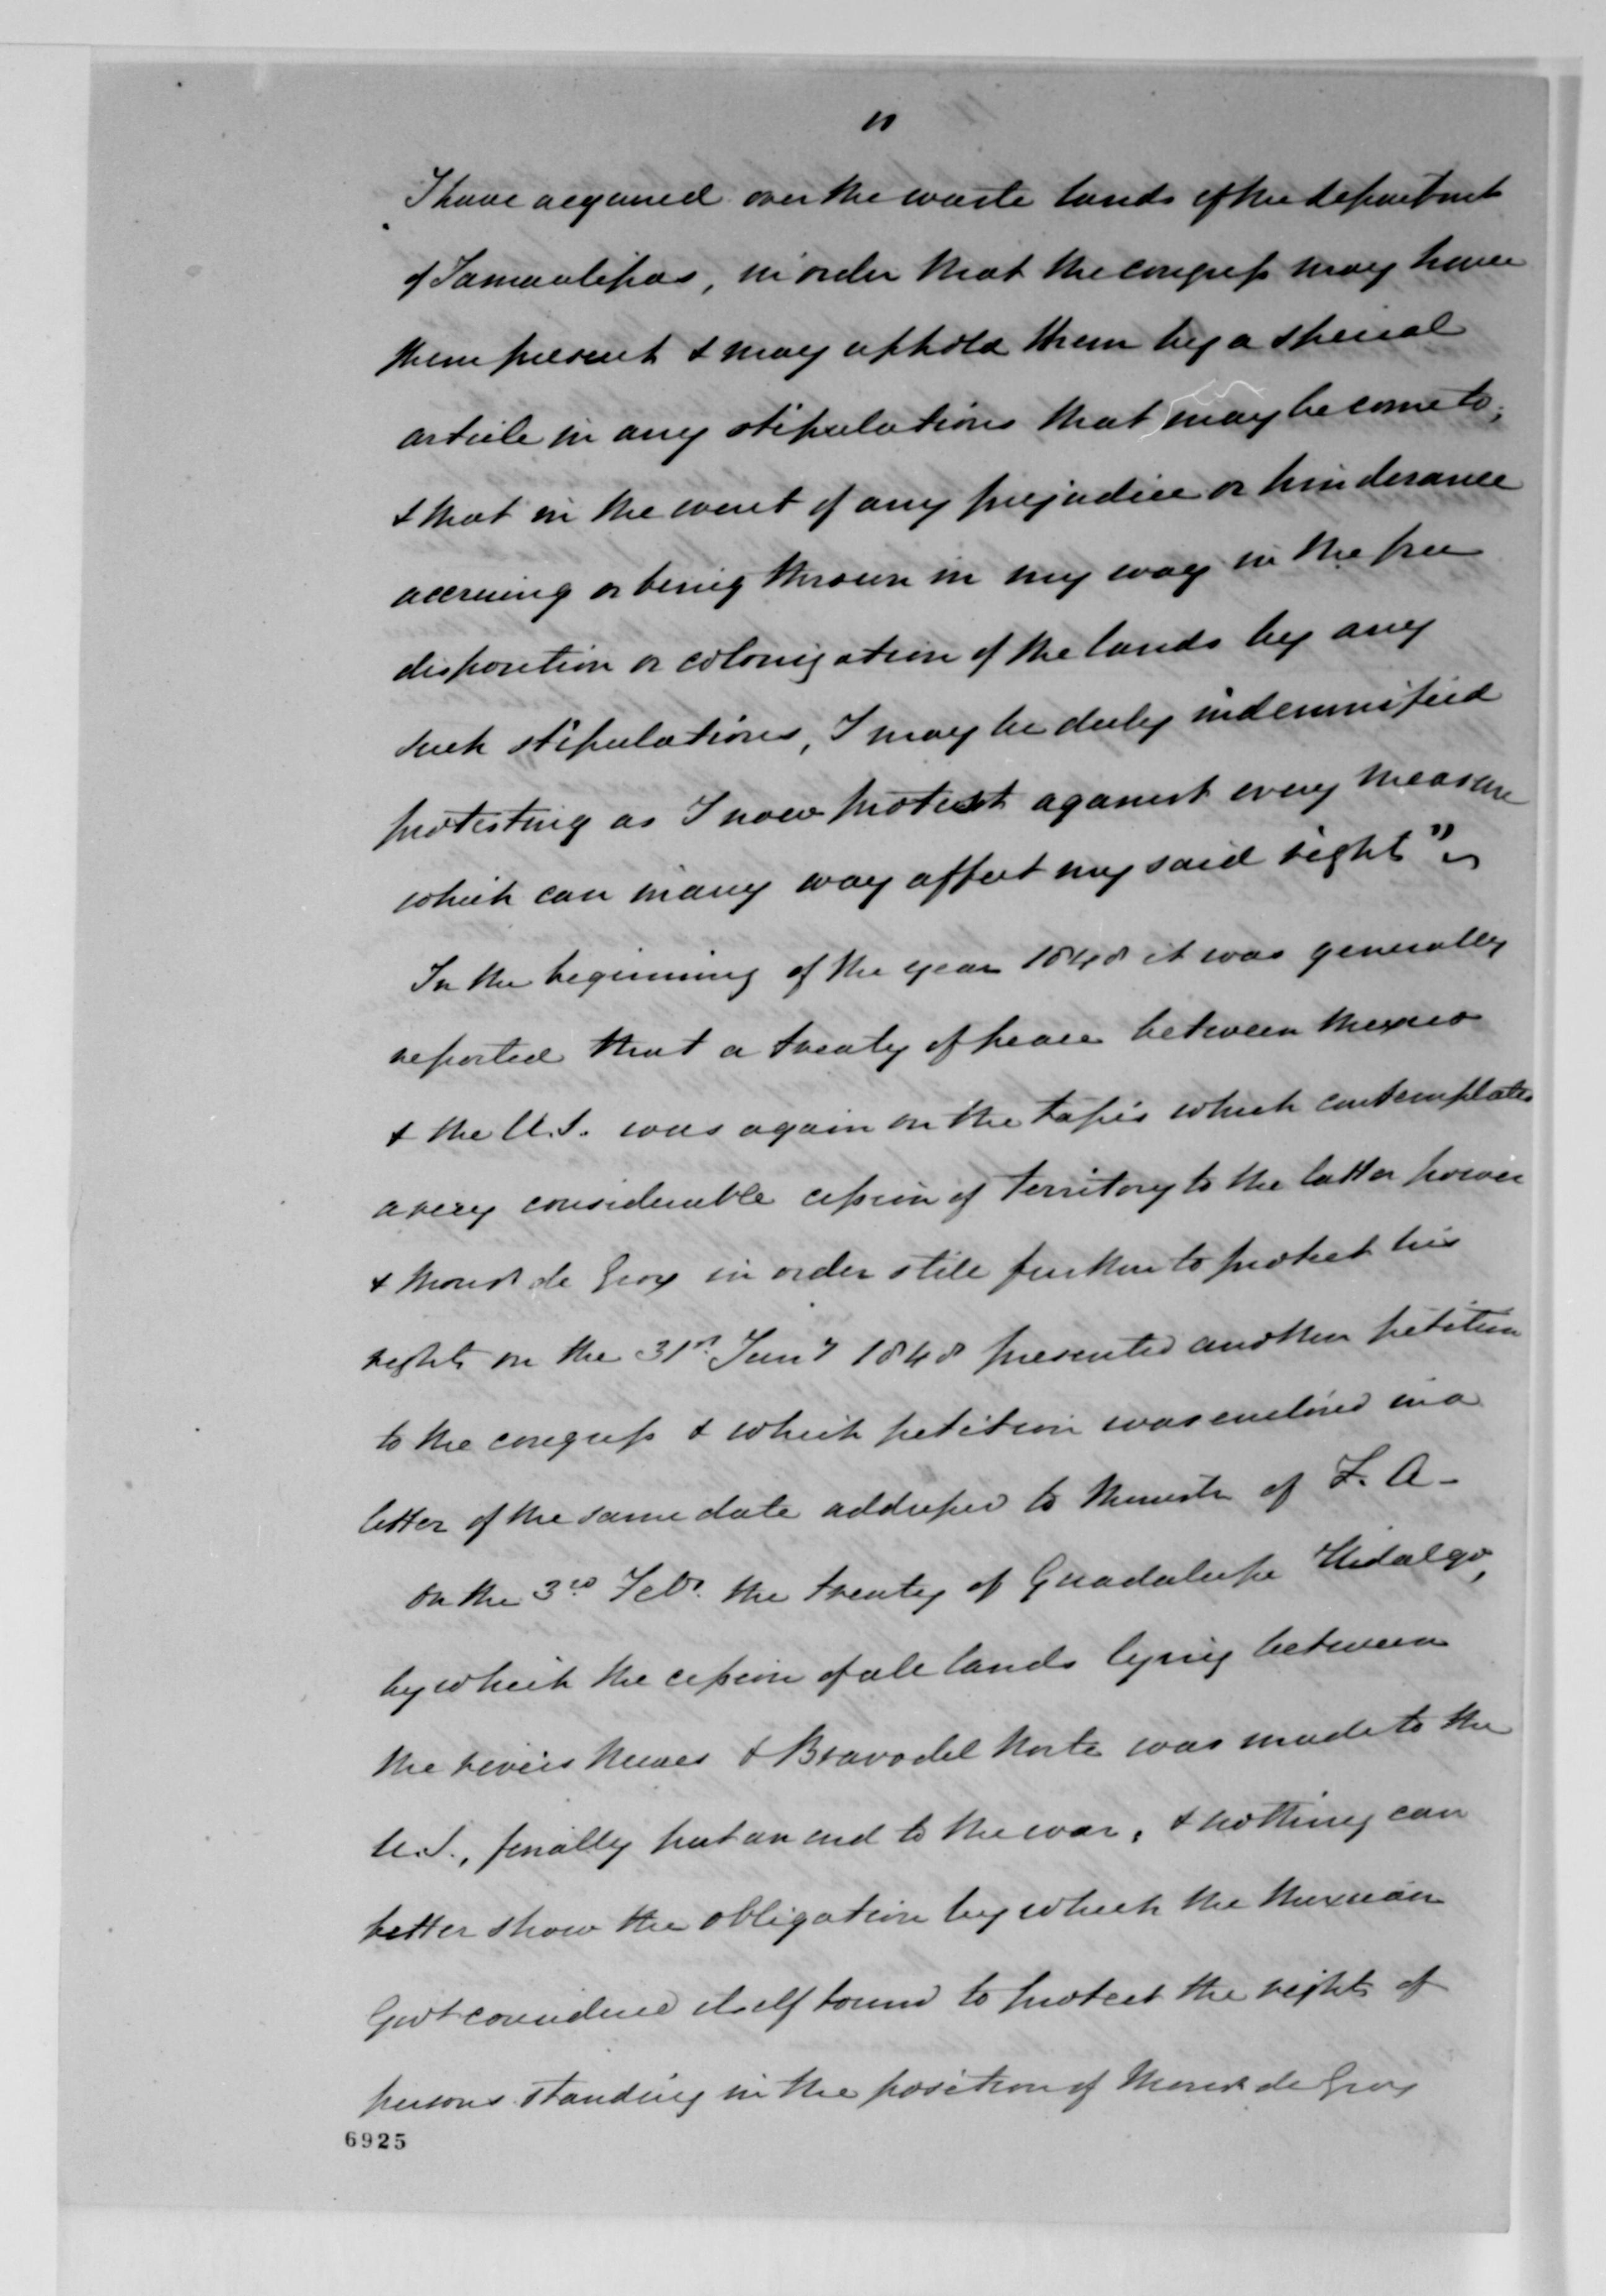 11
I have acquired over the waste lands of the department
of Tamaulipas, in order that the congress may have
them present & may uphold them by a special
article in any stipulations that may be come to;
& that in the event of any prejudice or hinderance
accruing or being thrown in my way in the free
disposition or colonization of the lands by any
such stipulations, I may be duly indemnified
protesting as I now protest against every measure
which can in any way affect my said right"
In the beginning of the year 1848 it was generally
reported that a treaty of peace between Mexico
& the U.S. was again on the tapis which contemplated
a very considerable cession of territory to the latter power
& Monsr de Grox in order still further to protect his
rights on the 31st Jany 1848 presented another petition
to the congress & which petition was enclosed in a
letter of the same date addressed to Minister of F. A-
On the 3rd Feb. the treaty of Guadalupe Hidalgo,
by which the cession of all lands lying between
the rivers Nueces & Bravo del Norte was made to the
U.S., finally put an end to the war, & nothing can
better show the obligation by which the Mexican
Govt considered itself bound to protect the rights of
persons standing in the position of Monsr de Grox
6925